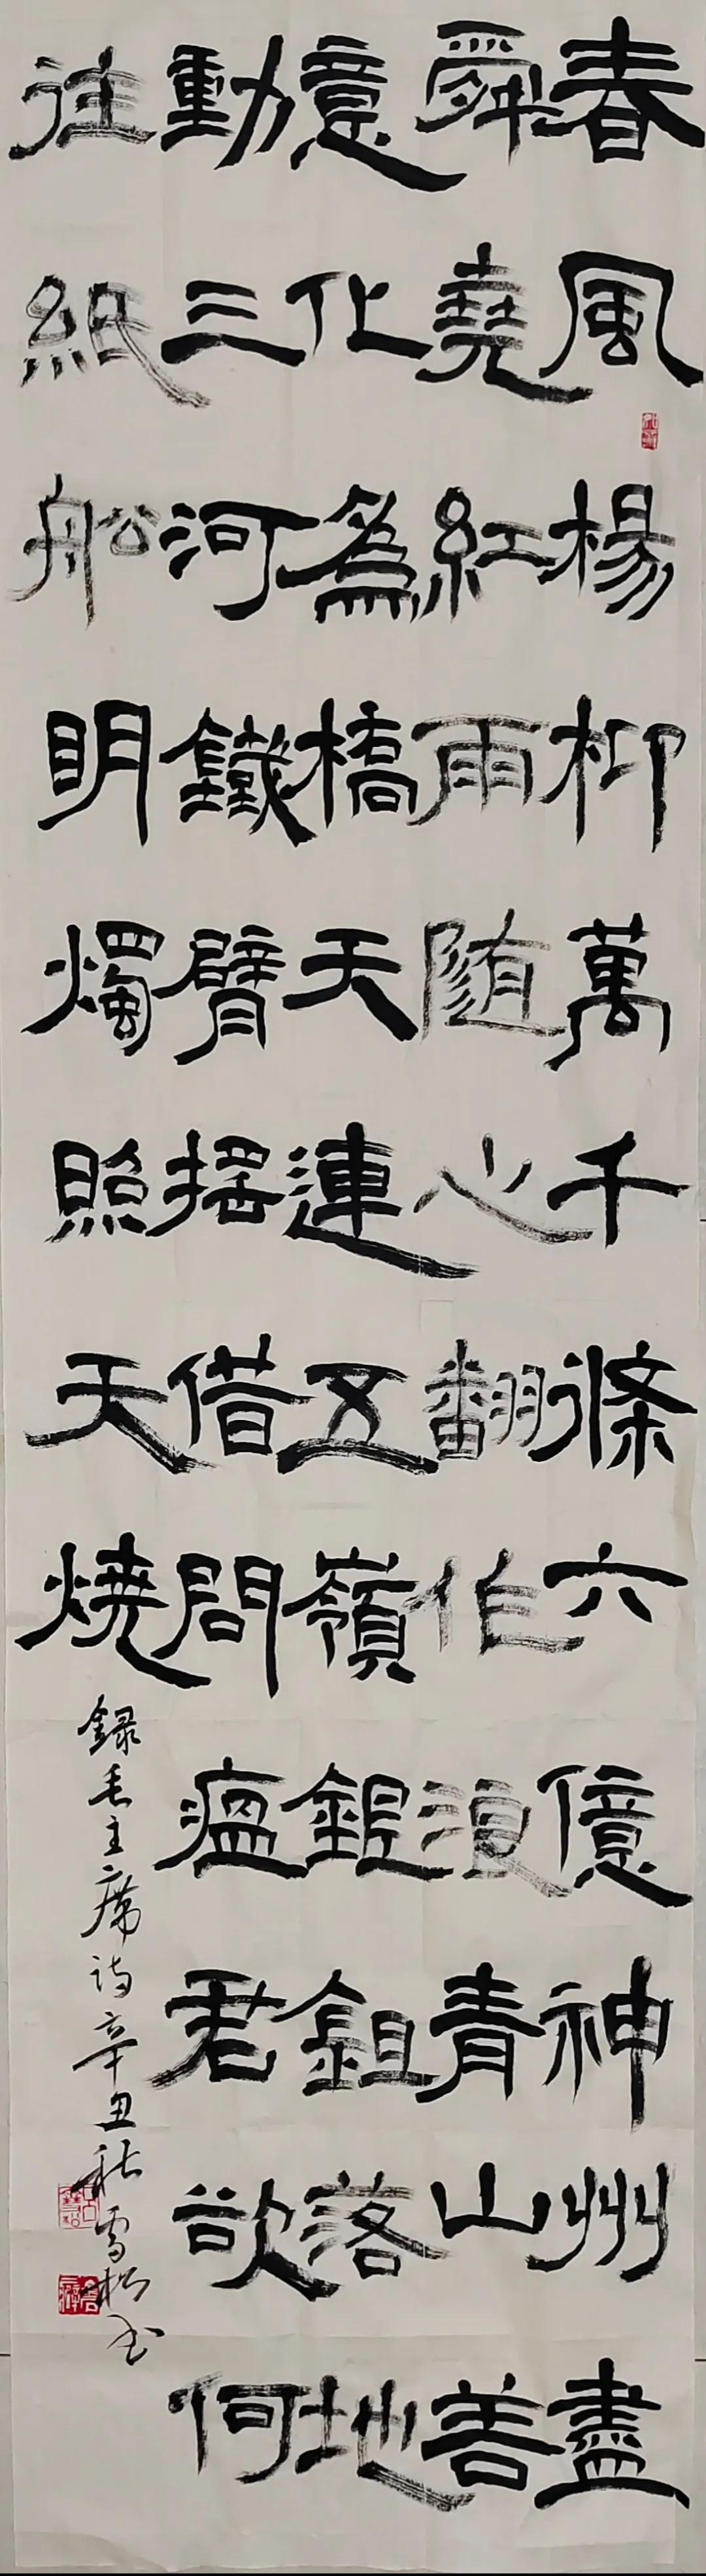 春風楊柳萬千條六億神州盡
舜堯紅雨随心翻作浪青山善
意化為橋天連五嶺銀鉏落地
動三河鐵臂摇借問瘟君欲何
往紙舩明燭照天燒
録毛主席诗辛丑秋雪松书